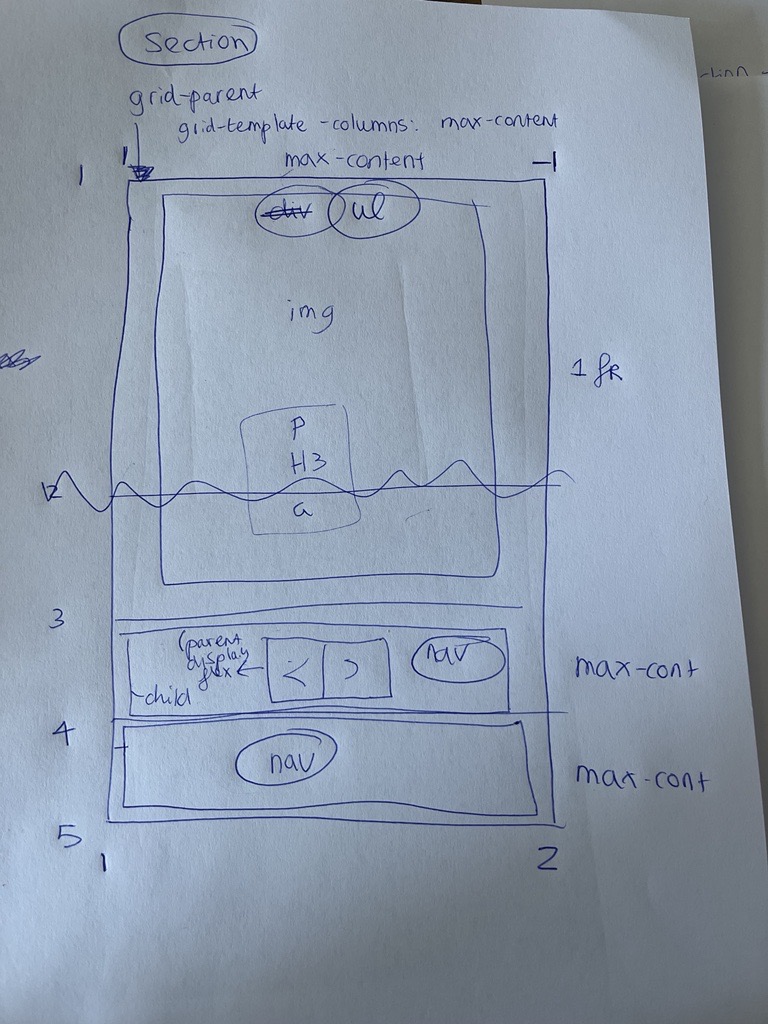 Section
grid-parent
grid-template-columns: max-content
max-content
1
1
-1
div ul
img
1 fR
P
H3
2
a
3
(parent
display
flex
< >
nav
child
max-cont
4
nav
max-cont
5
1
2